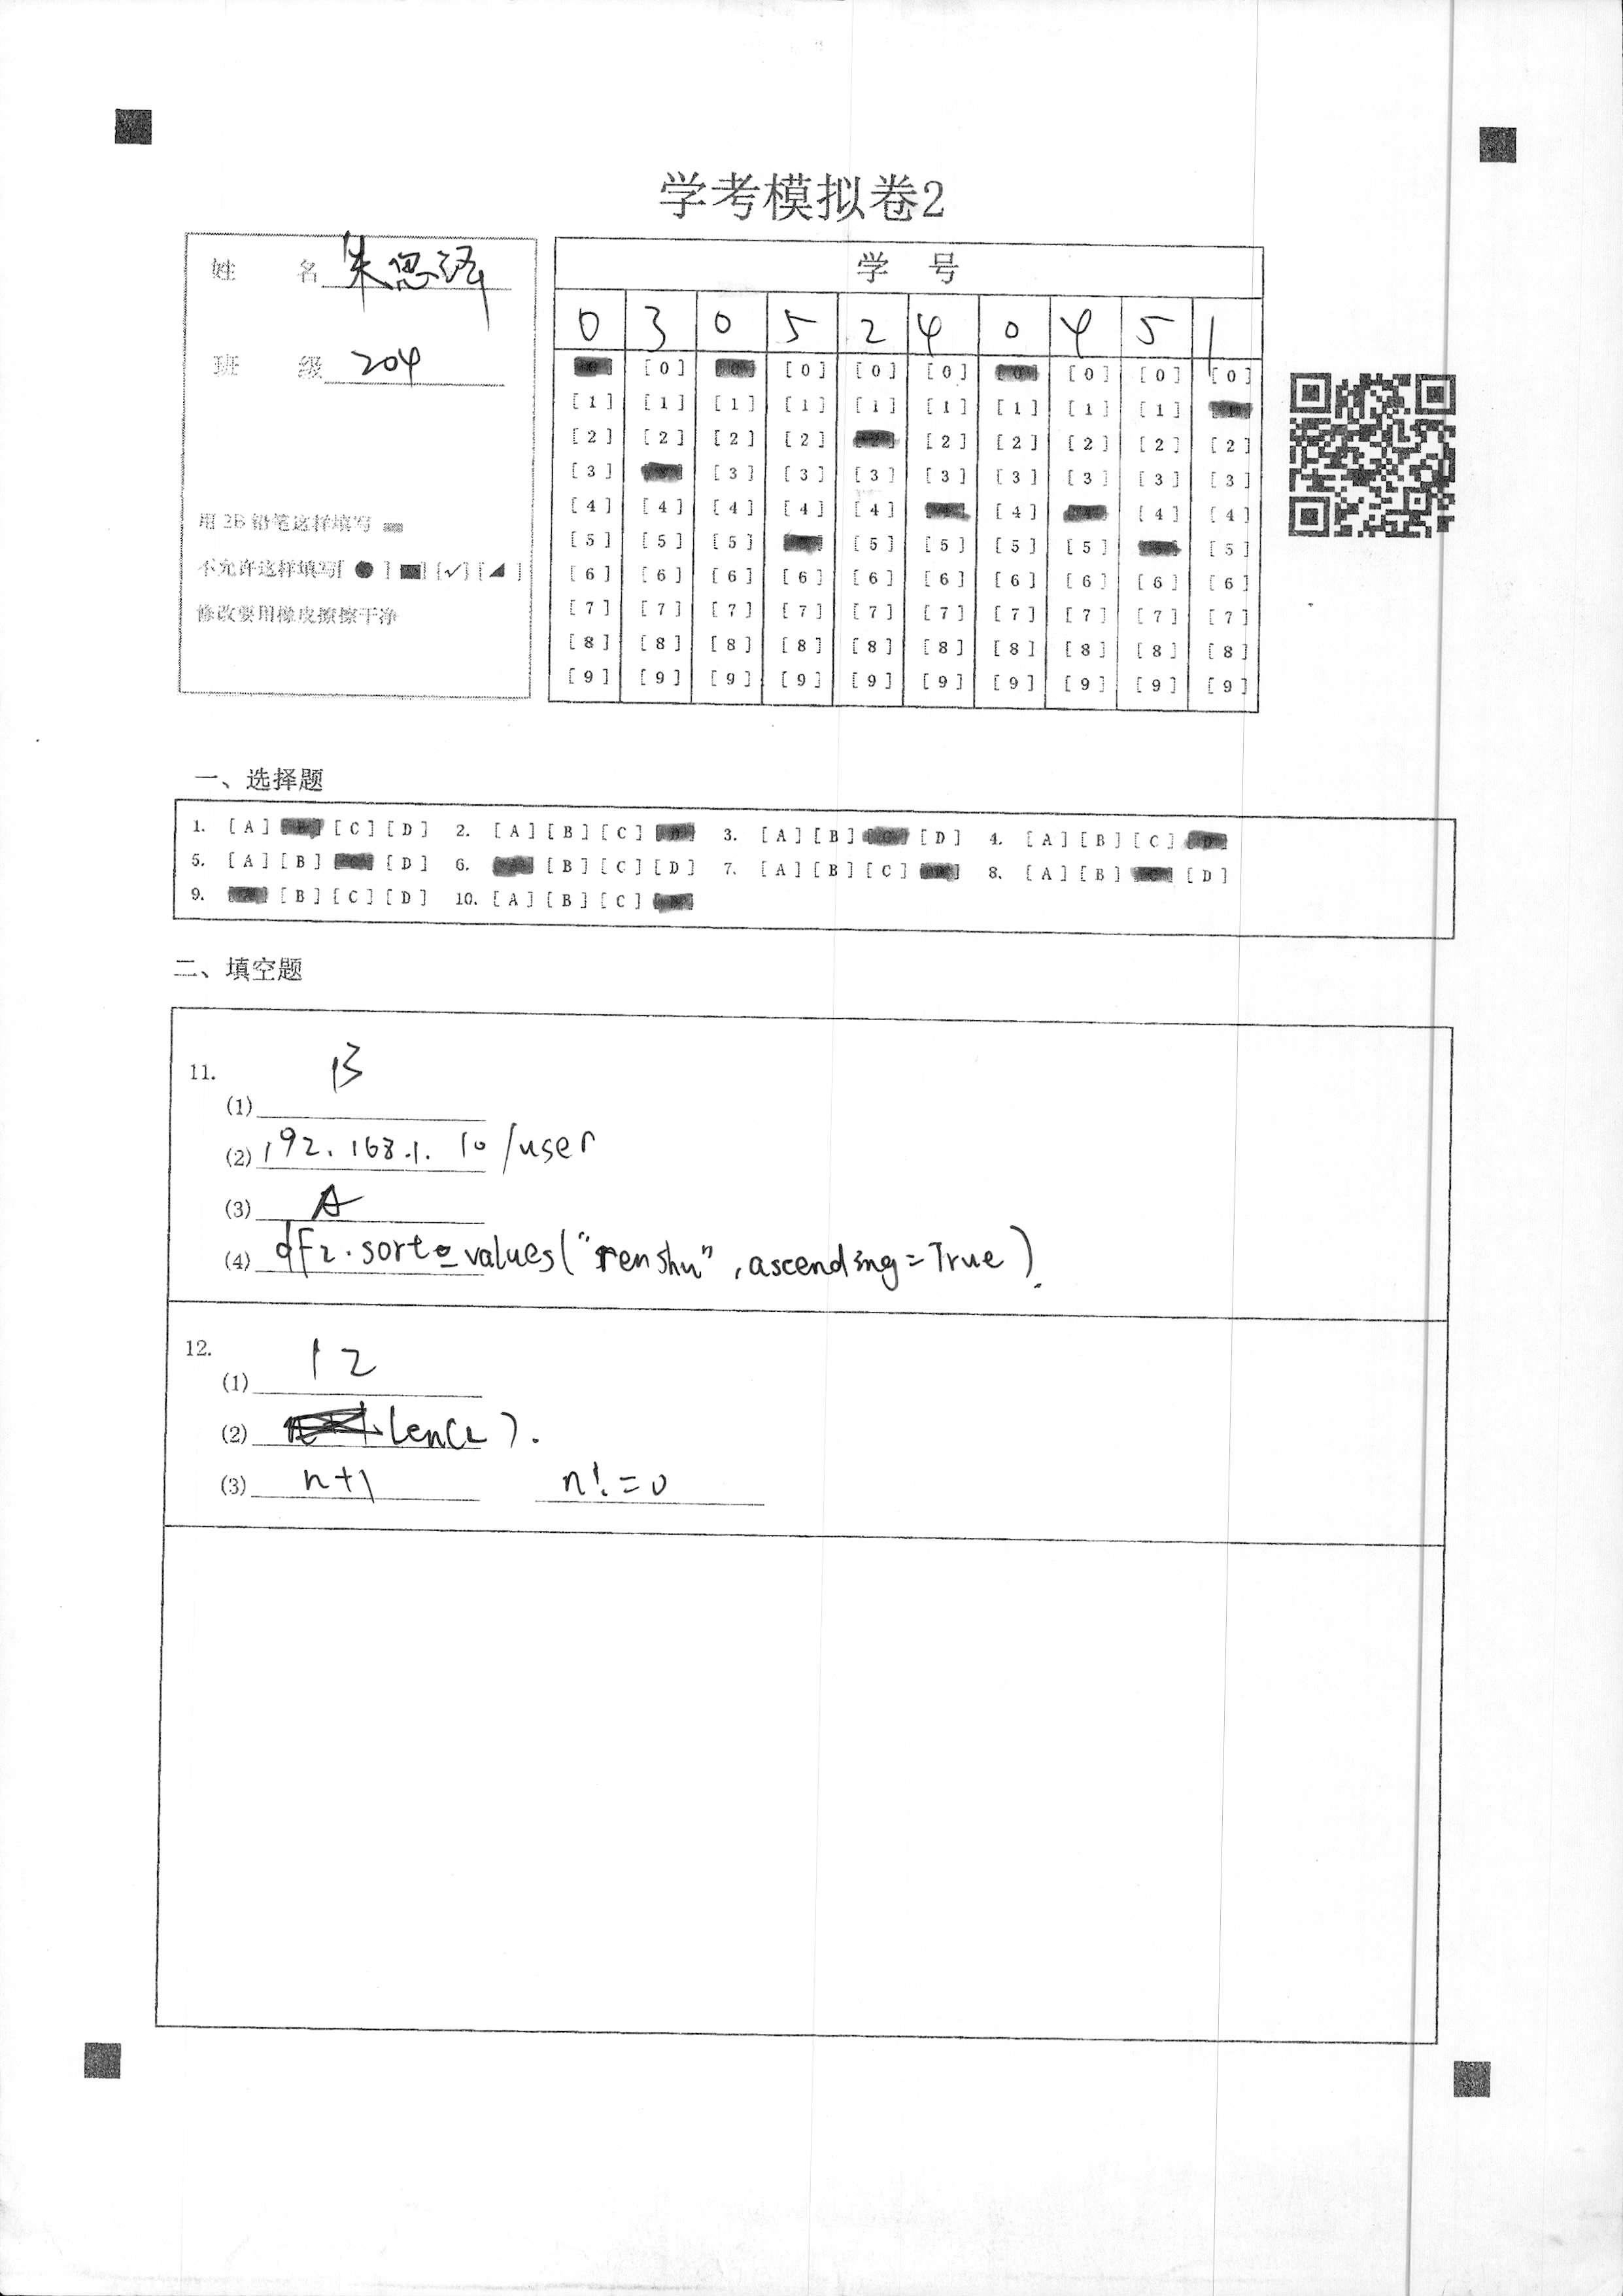 学考模拟卷2
姓 名 朱思泽
班 级 204
用 2B 铅笔这样填写
不允许这样填写[●] [■] [✓] [◢]
修改要用橡皮擦擦干净
学 号
0 3 0 5 2 4 0 4 5 1
[0] [0] [0] [0] [0] [0] [0] [0] [0] [0]
[1] [1] [1] [1] [1] [1] [1] [1] [1] [1]
[2] [2] [2] [2] [2] [2] [2] [2] [2] [2]
[3] [3] [3] [3] [3] [3] [3] [3] [3] [3]
[4] [4] [4] [4] [4] [4] [4] [4] [4] [4]
[5] [5] [5] [5] [5] [5] [5] [5] [5] [5]
[6] [6] [6] [6] [6] [6] [6] [6] [6] [6]
[7] [7] [7] [7] [7] [7] [7] [7] [7] [7]
[8] [8] [8] [8] [8] [8] [8] [8] [8] [8]
[9] [9] [9] [9] [9] [9] [9] [9] [9] [9]
一、选择题
1. [A] [B] [C] [D] 2. [A] [B] [C] [D] 3. [A] [B] [C] [D] 4. [A] [B] [C] [D]
5. [A] [B] [C] [D] 6. [A] [B] [C] [D] 7. [A] [B] [C] [D] 8. [A] [B] [C] [D]
9. [A] [B] [C] [D] 10. [A] [B] [C] [D]
二、填空题
11.
(1) B
(2) 192.168.1.10/user
(3) A
(4) df2.sort_values("renshu",ascending=True).
12.
(1) 12
(2) len(c).
(3) n+1 n!=0